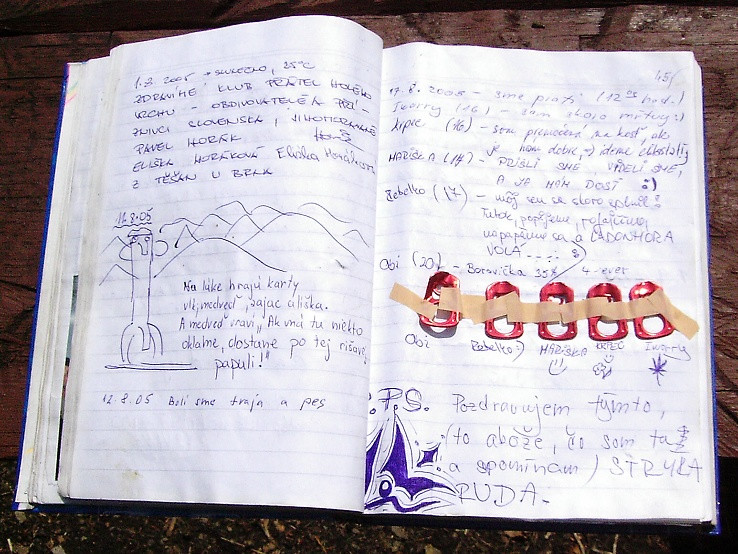 1.8. 2005 → SLUNEČNO, 25°C
ZDRAVÍME KLUB PŘÁTEL HOLÉHO
VRCHU - OBDIVOVATELÉ A PŘÍ-
ZNIVCI SLOVENSKA Z JIHOMORAVSKÉ
PAVEL HORÁK
ELIŠKA HORÁKOVÁ Eliška Horáková
Z TĚŠAN U BRNA
11.8.05
Na lúke hrajú karty
vlk, medveď, zajac a líška.
A medveď vraví „Ak ma tu niekto
oklame, dostane po tej rišavej
papuli!"
12.8.05 Boli sme traja a pes
15/
17.8.2005 - sme prví (12 hod.)
Iworry (16) - som
krpec (16) - som premočená na kosť, ale
je nám dobre,
MARIŠKA (17) - PRIŠLI SME, VIDELI SME,
A JA MÁM DOSŤ :)
Rebelko (17) - môj sen sa skoro splnil:
napapáme sa a LADONHORA
VOLÁ ....
Obi (20) - Borovička 35% 4-ever
Obi Rebelko :) MARIŠKA KRPEC Iworry
P.S. Pozdravujem týmto,
(to abože, čo som tu
a spomínam) STRÝKA
RUDA-